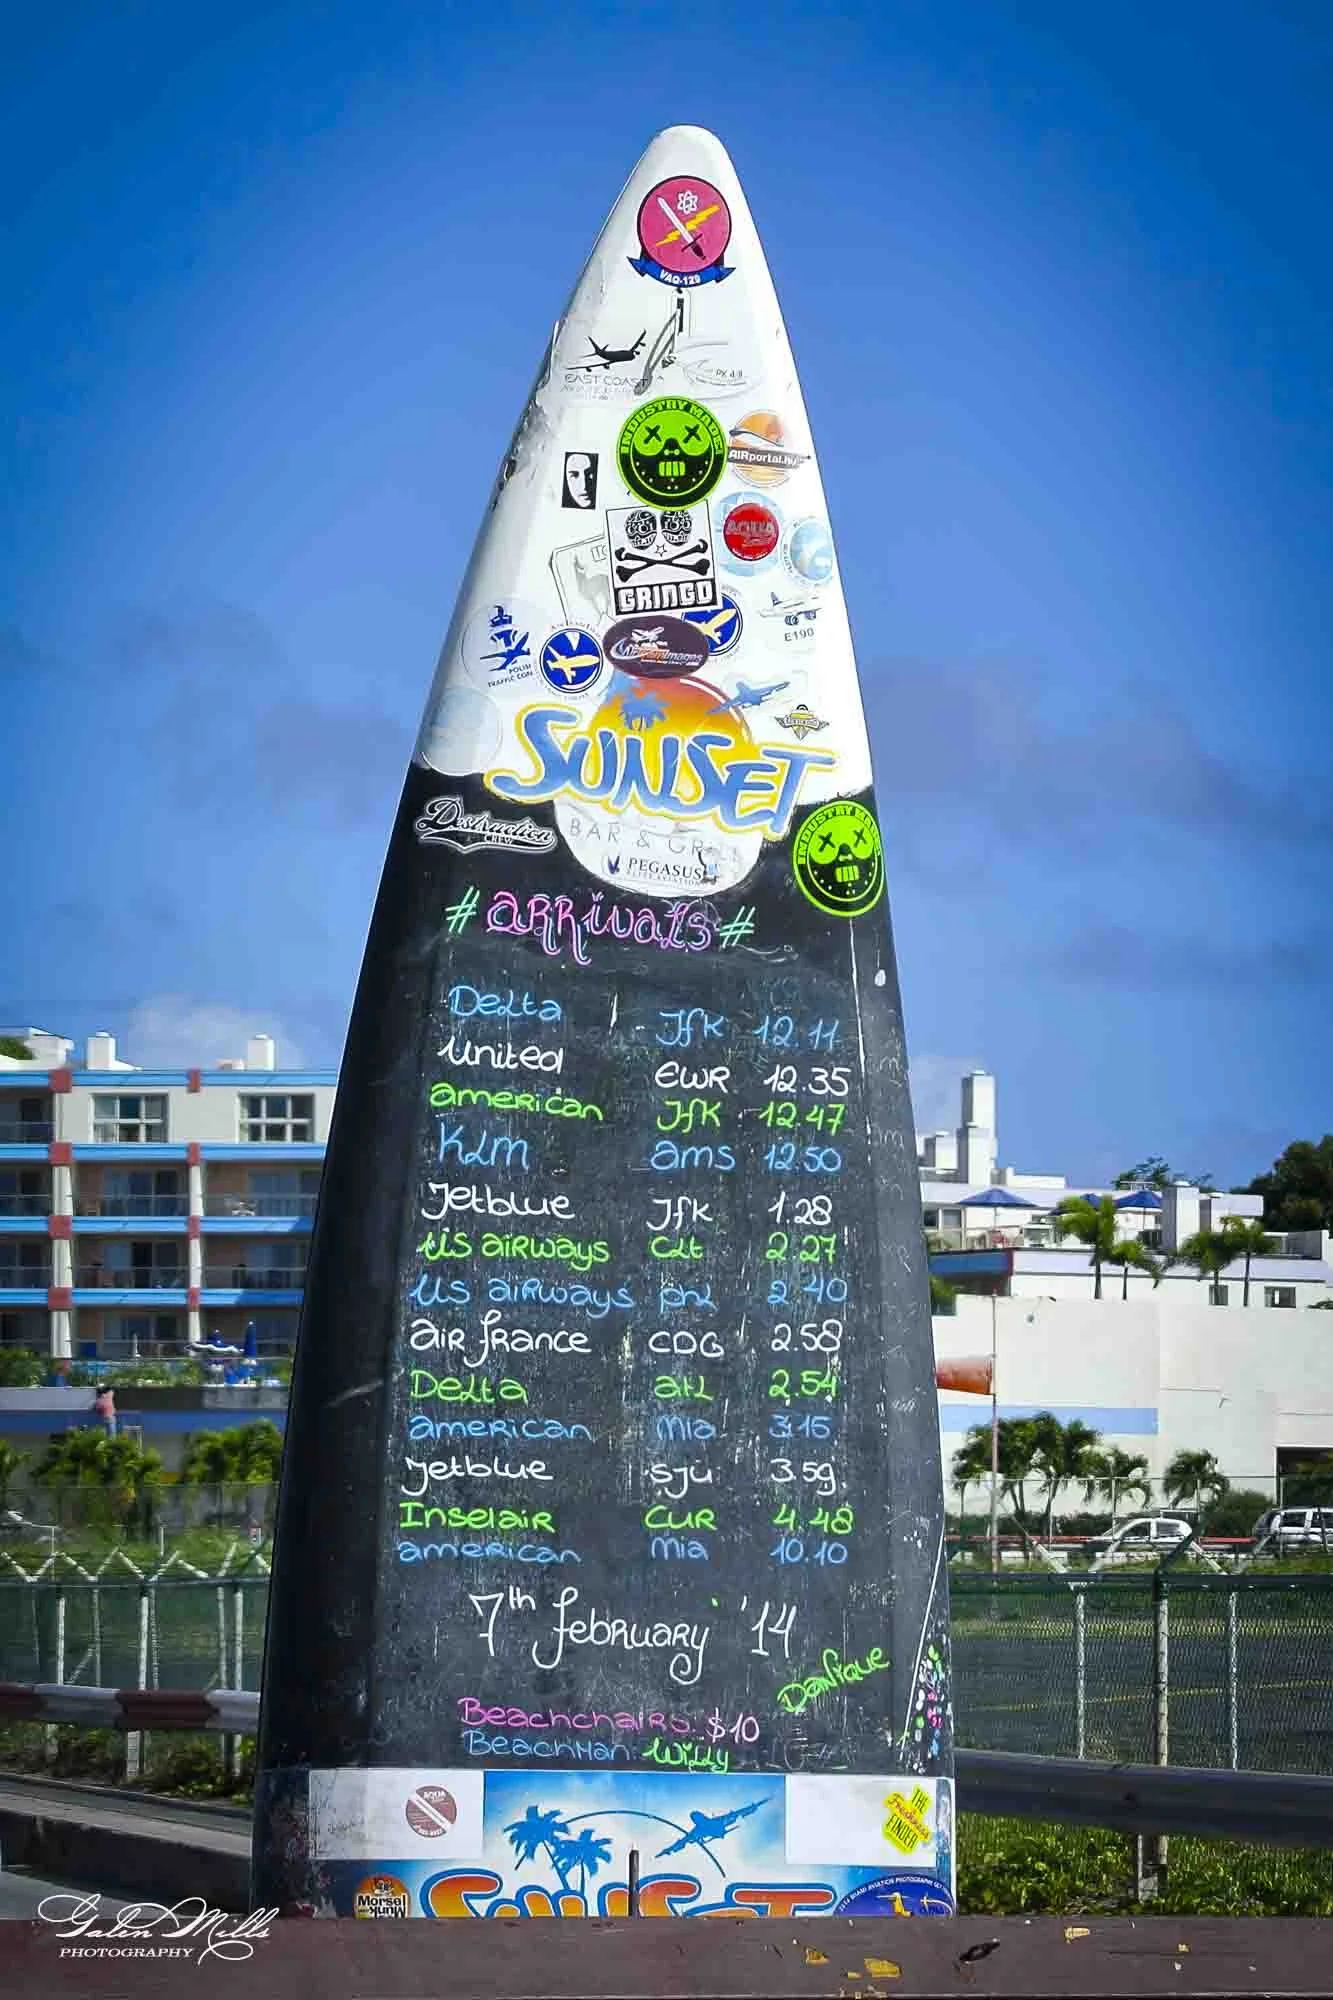 VAQ-129
EAST COAST
PK 4.8
INDUSTRY MADE!
AIRportal.hu
AQUA
GRINGO
E190
POLISH
TRAFFIC CON
SUNSET
BAR & GRILL
PEGASUS
Destruction
CREW
INDUSTRY MADE!
# ARRivaLS #
DeLta JfK 12.11
United EWR 12.35
ameRican JfK 12.47
KLM ams 12.50
Jetblue JfK 1.28
US aiRways CLt 2.27
US aiRways phL 2.40
aiR france CDG 2.58
DeLta atL 2.54
ameRican mia 3.15
Jetblue SJU 3.59
InselaiR CUR 4.48
ameRican mia 10.10
7th february '14
Danique
Beachchairs: $10
BeachMan: Willy
AQUA
THE
Freshness
FINDER
Morsel
Munk
SUNSET
Galen Mills
PHOTOGRAPHY